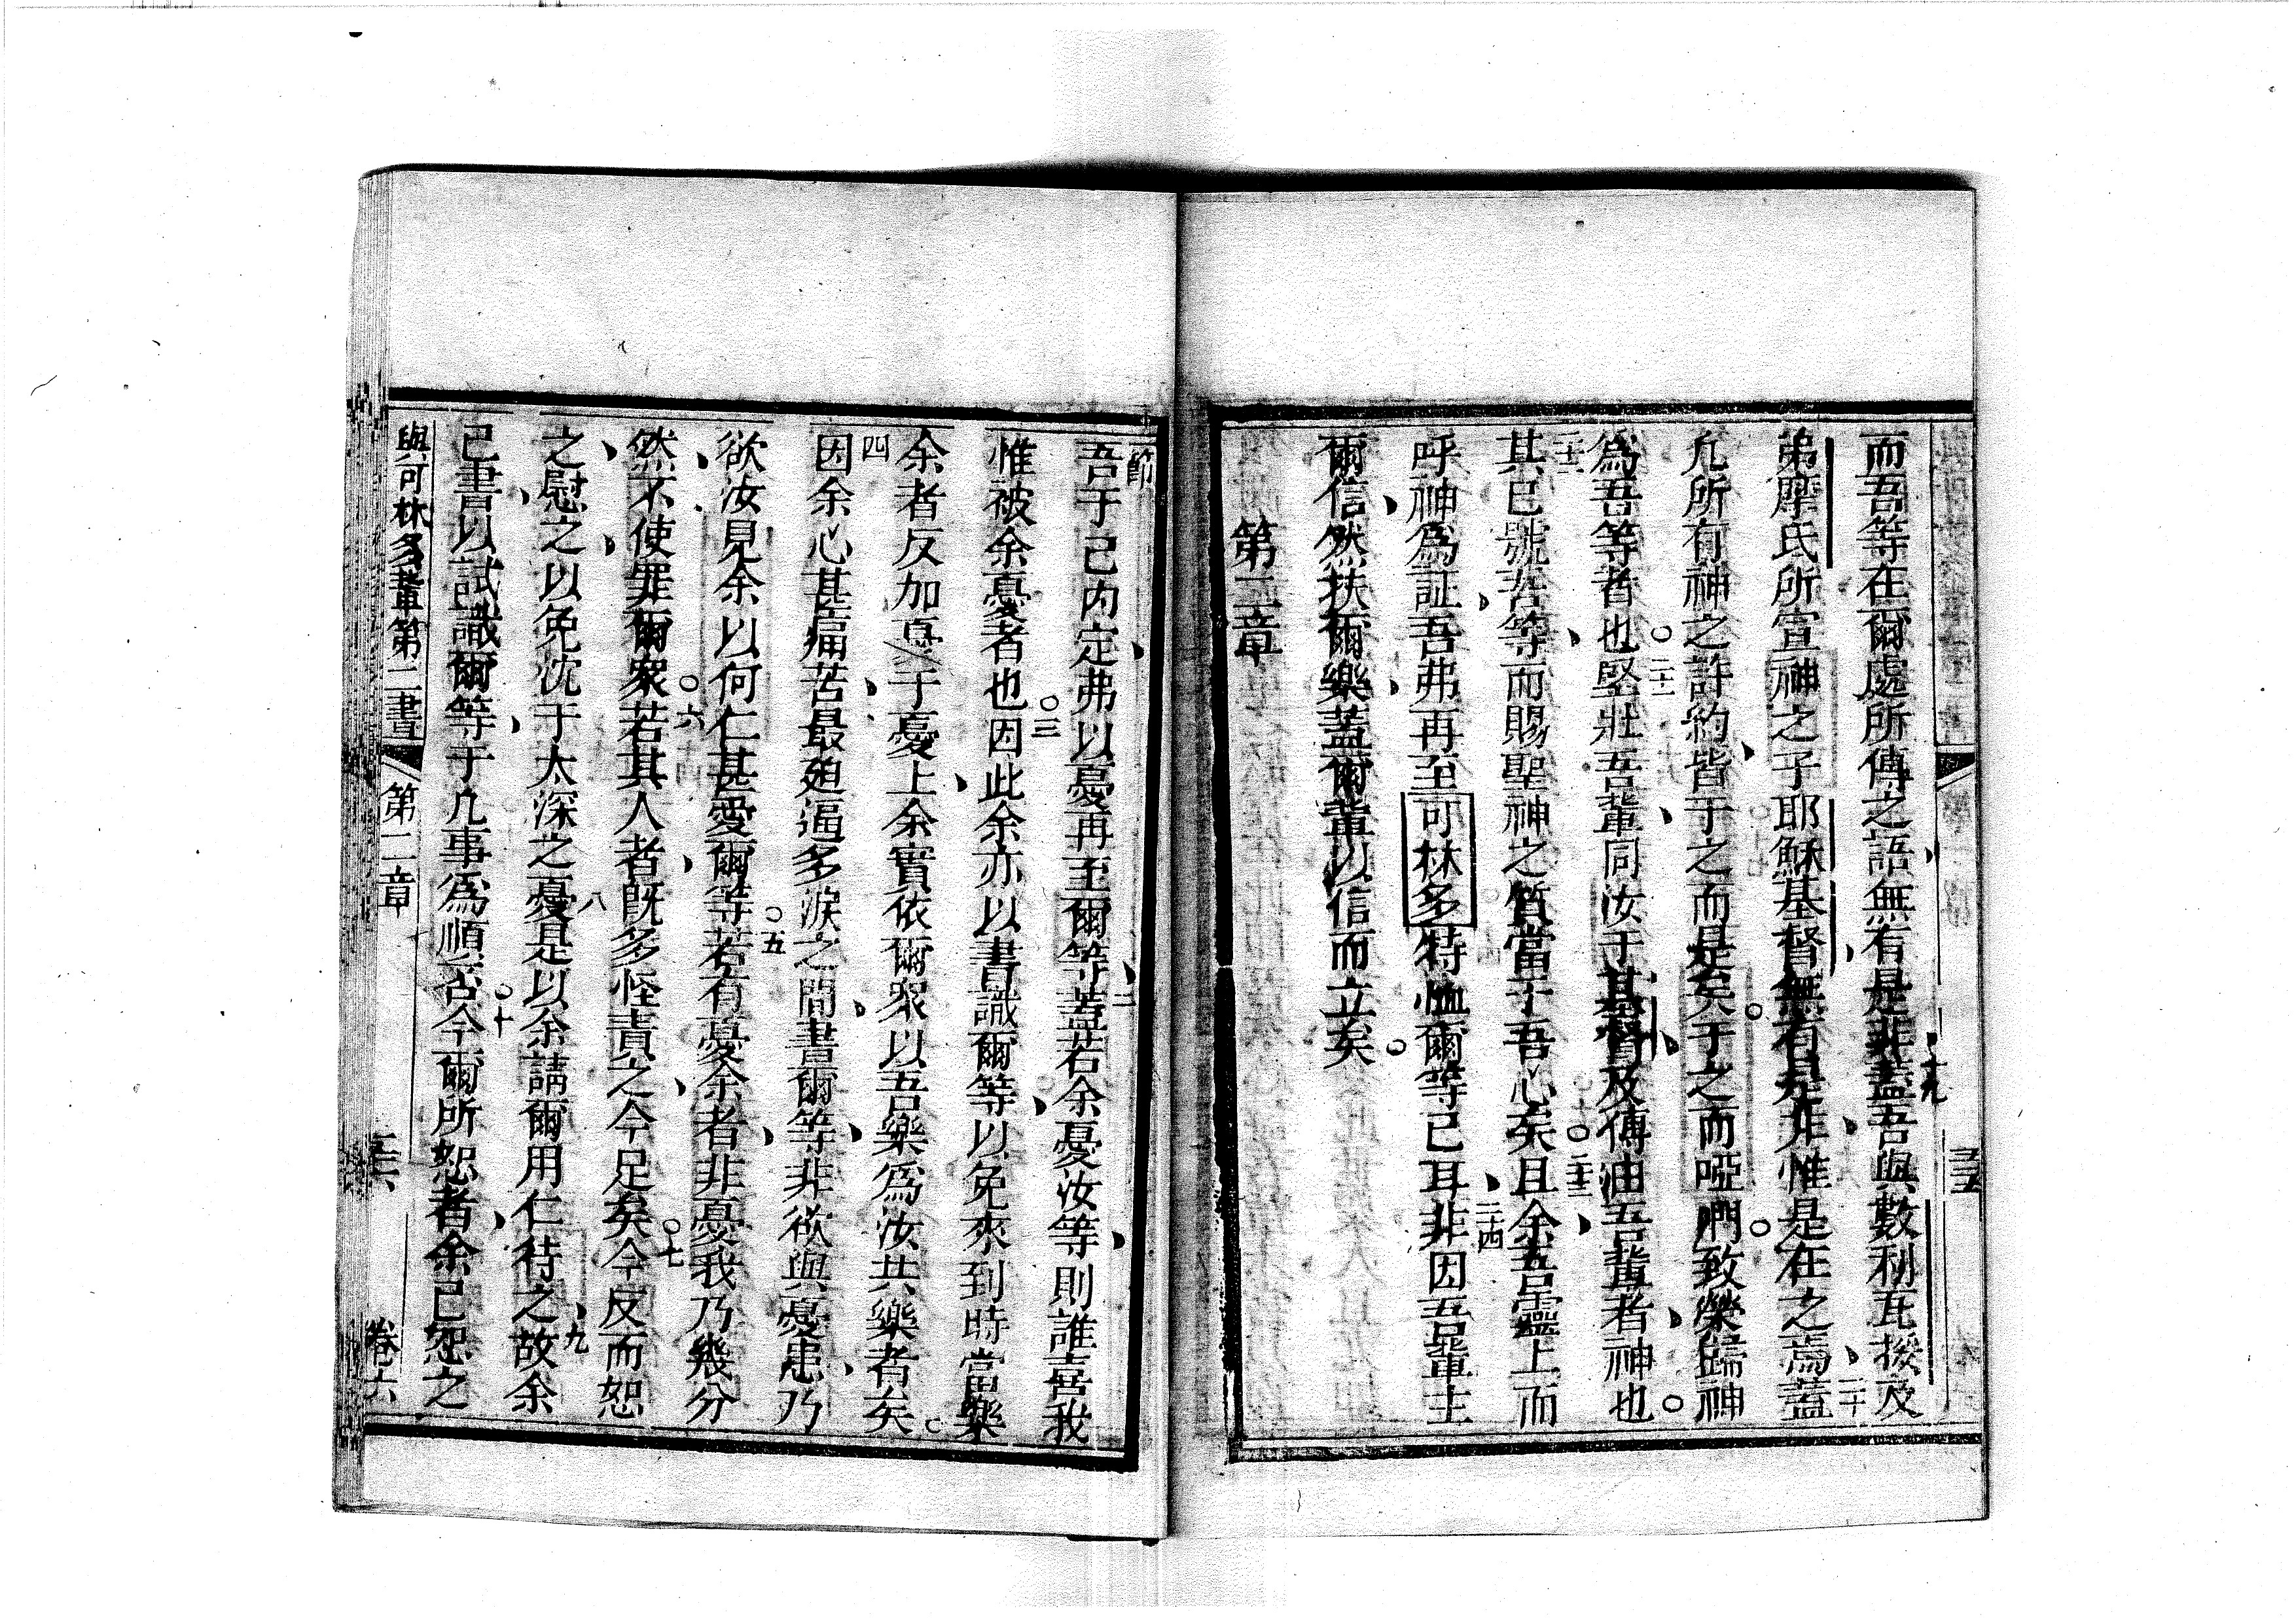 而吾等在爾處所傳之語、無有是非、十九蓋吾與數利瓦接及
弟摩氏所宣神之子耶穌基督、無有是非、惟是在之焉、二十蓋
凡所有神之許約、皆于之而是矣。于之而啞們。致榮歸神
為吾等者也。二十一堅壯吾輩、同汝于基督、及傅油吾輩者、神也。
二十二其已號吾等、而賜聖神之質當于吾心矣。二十三且余、吾靈上而
呼神為証、吾弗再至可林多、特恤爾等已耳、二十四非因吾輩主
爾信、然扶爾樂、蓋爾輩以信而立矣。
第二章
一節吾于己內定、弗以憂再至爾等、二蓋若余憂汝等、則誰喜我
惟被余憂者也。三因此余亦以書識爾等、以免來到時當樂
余者反加憂于憂上、余實依爾眾以吾樂為汝共樂者矣。
四因余心甚痛苦、最廹逼多淚之間、書爾等、非欲與憂患、乃
欲汝見余以何仁甚愛爾等。五若有憂余者、非憂我、乃幾分
然、不使罪爾眾。六若其人者、既多怪責之、今足矣。七今反而恕
之、慰之、以免沈于太深之憂、八是以余請爾用仁待之、九故余
已書、以試識爾等、于凡事為順否。十今爾所恕者、余已恕之
與可林多輩第二書 第二章 三六 卷六